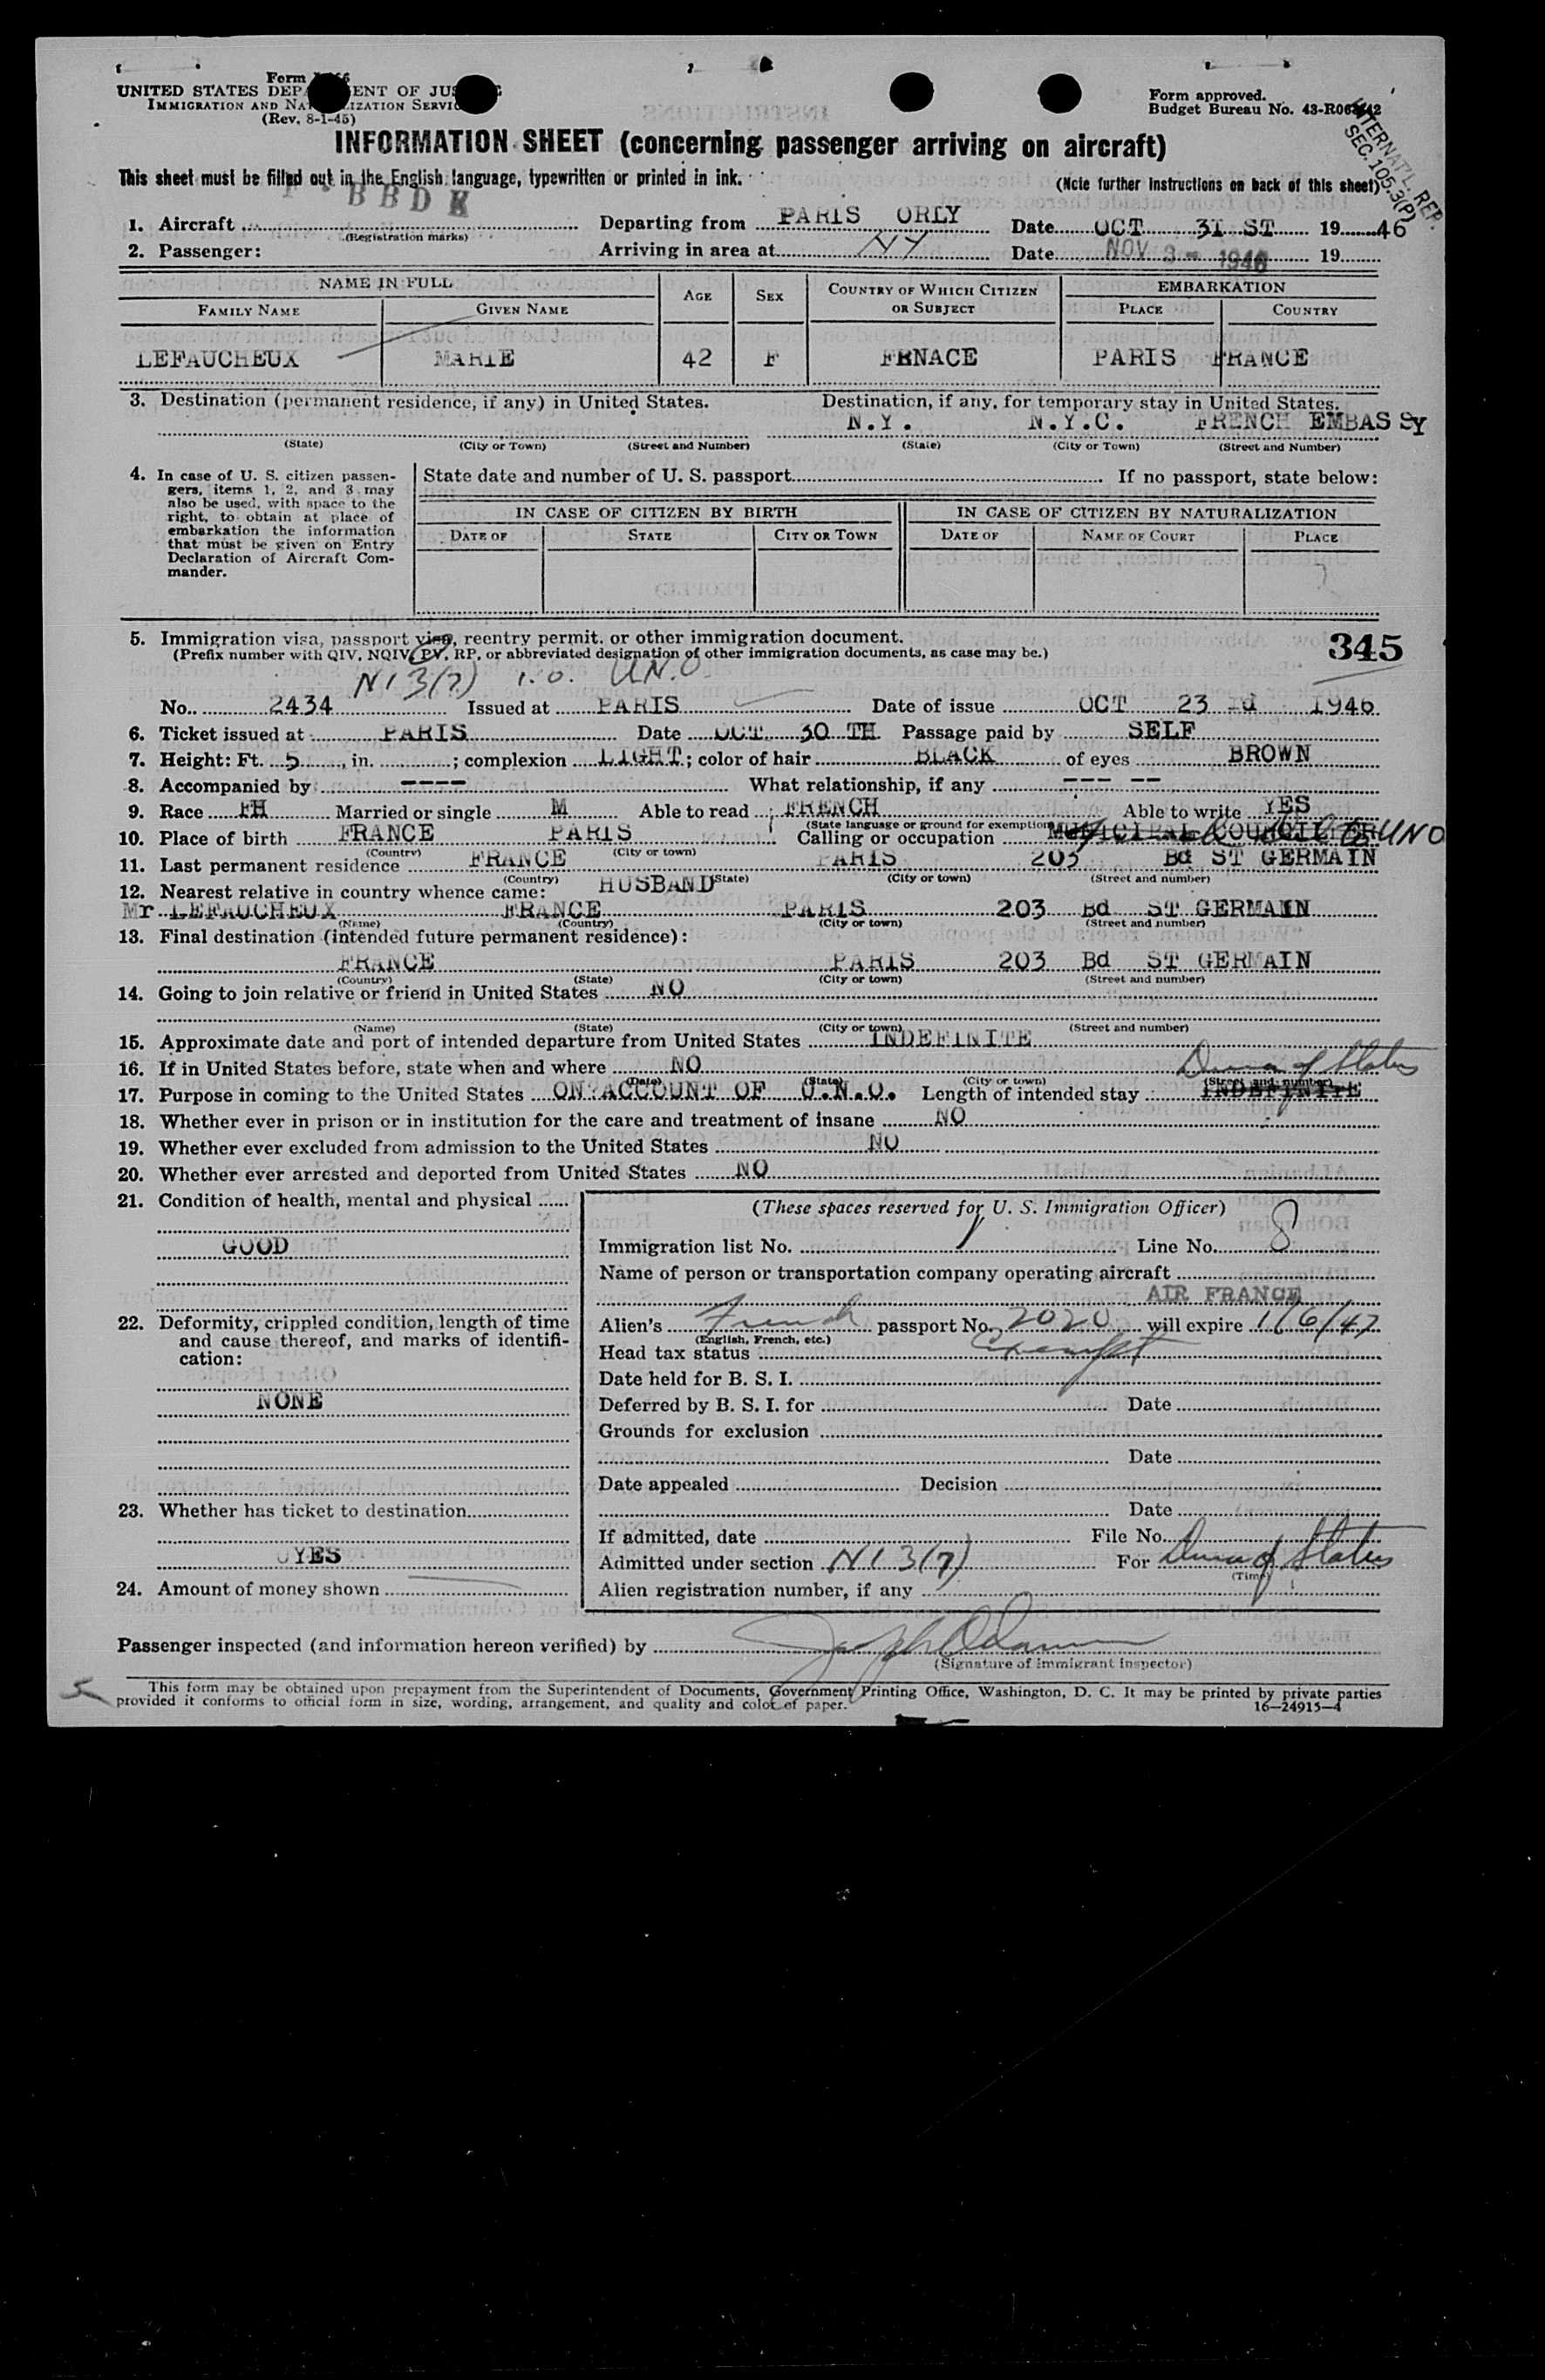 UNITED STATES DEPA ENT OF JUS
IMMIGRATION AND NA IZATION SERVIC
(Rev. 8-1-45)
Form approved.
Budget Bureau No.
INTERNAT'L. REP.
SEC. 105.3(P)
INFORMATION SHEET (concerning passenger arriving on aircraft)
This sheet must be filled out in the English language, typewritten or printed in ink.
(Note further instructions on back of this sheet)
BBDK
1. Aircraft Departing from PARIS ORLY Date OCT 3I ST 19 46
(Registration marks)
2. Passenger: Arriving in area at NY Date NOV 3 - 1946 19
NAME IN FULL AGE SEX COUNTRY OF WHICH CITIZEN OR SUBJECT EMBARKATION
FAMILY NAME GIVEN NAME PLACE COUNTRY
LEFAUCHEUX MARIE 42 F FRNACE PARIS FRANCE
3. Destination (permanent residence, if any) in United States. Destination, if any, for temporary stay in United States.
N.Y. N.Y.C. FRENCH EMBAS SY
(State) (City or Town) (Street and Number) (State) (City or Town) (Street and Number)
4. In case of U. S. citizen passen-
gers, items 1, 2, and 3 may
also be used, with space to the
right, to obtain at place of
embarkation the information
that must be given on Entry
Declaration of Aircraft Com-
mander.
State date and number of U. S. passport If no passport, state below:
IN CASE OF CITIZEN BY BIRTH IN CASE OF CITIZEN BY NATURALIZATION
DATE OF STATE CITY OR TOWN DATE OF NAME OF COURT PLACE
5. Immigration visa, passport visa, reentry permit, or other immigration document.
(Prefix number with QIV, NQIV, PV, RP, or abbreviated designation of other immigration documents, as case may be.)
345
N I 3(7) I.O. U.N.O.
No. 2434 Issued at PARIS Date of issue OCT 23 rd 1946
6. Ticket issued at PARIS Date OCT 30 TH Passage paid by SELF
7. Height: Ft. 5 , in. ; complexion LIGHT ; color of hair BLACK of eyes BROWN
8. Accompanied by ---- What relationship, if any --- --
9. Race FH Married or single M Able to read FRENCH Able to write YES
(State language or ground for exemption)
10. Place of birth FRANCE PARIS Calling or occupation MUNICIPAL COUNCILLER UNO
(Country) (City or town)
11. Last permanent residence FRANCE PARIS 203 Bd ST GERMAIN
(Country) (State) (City or town) (Street and number)
12. Nearest relative in country whence came: HUSBAND
Mr LEFAUCHEUX FRANCE PARIS 203 Bd ST GERMAIN
(Name) (Country) (City or town) (Street and number)
13. Final destination (intended future permanent residence):
FRANCE PARIS 203 Bd ST GERMAIN
(Country) (State) (City or town) (Street and number)
14. Going to join relative or friend in United States NO
(Name) (State) (City or town) (Street and number)
15. Approximate date and port of intended departure from United States INDEFINITE
16. If in United States before, state when and where NO
(Date) (State) (City or town) (Street and number)
Dura of Status
17. Purpose in coming to the United States ON ACCOUNT OF U.N.O. Length of intended stay INDEFINITE
18. Whether ever in prison or in institution for the care and treatment of insane NO
19. Whether ever excluded from admission to the United States NO
20. Whether ever arrested and deported from United States NO
21. Condition of health, mental and physical
GOOD
22. Deformity, crippled condition, length of time
and cause thereof, and marks of identifi-
cation:
NONE
23. Whether has ticket to destination
YES
24. Amount of money shown
(These spaces reserved for U. S. Immigration Officer)
Immigration list No. 1 Line No. 8
Name of person or transportation company operating aircraft
AIR FRANCE
Alien's French passport No. 2020 will expire 1/6/47
(English, French, etc.)
Head tax status Exempt
Date held for B. S. I.
Deferred by B. S. I. for Date
Grounds for exclusion
Date
Date appealed Decision
Date
If admitted, date File No.
Admitted under section N I 3(7) For Dura of Status
(Time)
Alien registration number, if any
Passenger inspected (and information hereon verified) by Joseph
(Signature of Immigrant Inspector)
This form may be obtained upon prepayment from the Superintendent of Documents, Government Printing Office, Washington, D. C. It may be printed by private parties
provided it conforms to official form in size, wording, arrangement, and quality and color of paper.
16—24915-4